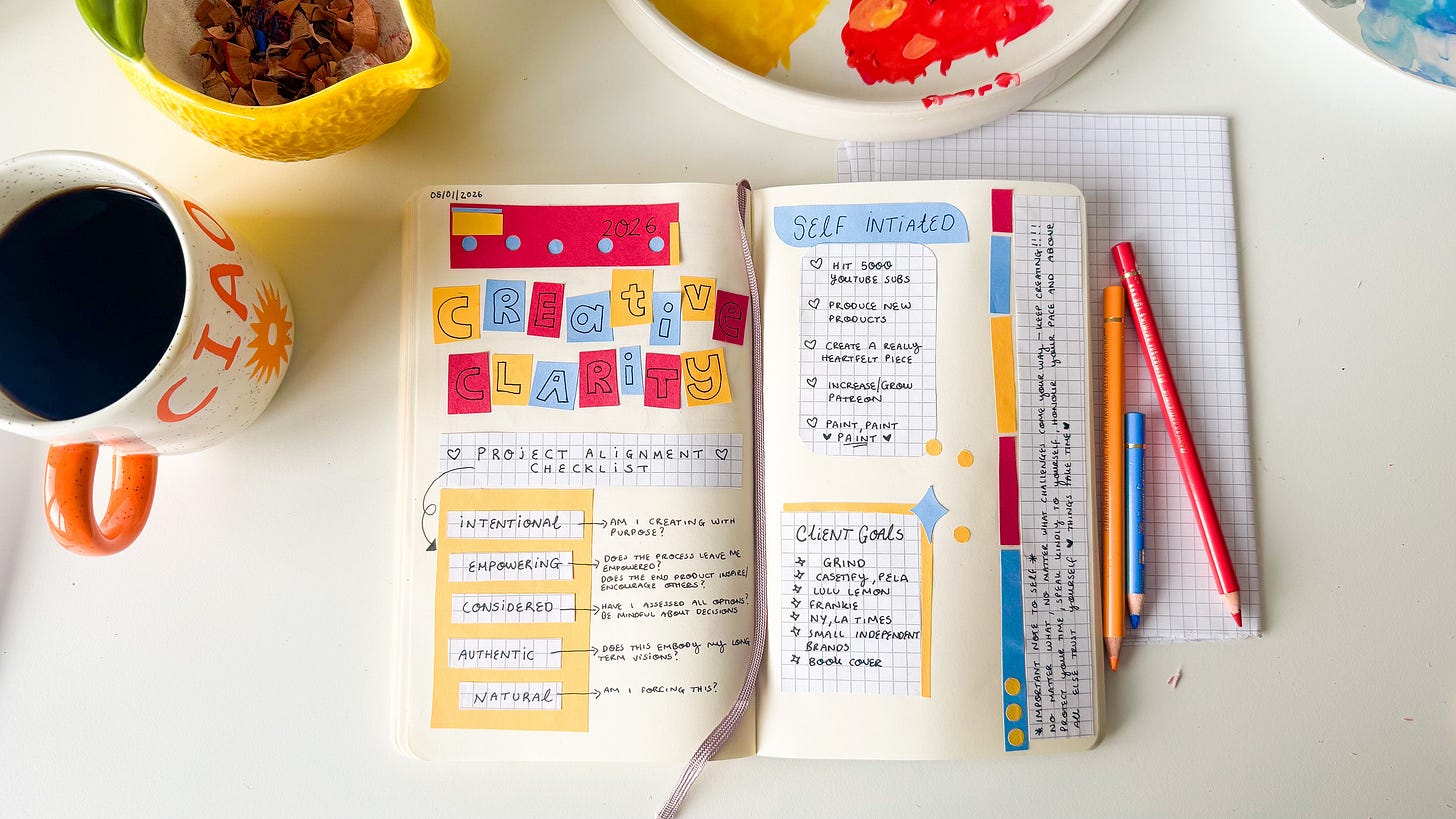 CIAO
05/01/2026
2026
CREAtive
CLARiTy
♡ PROJECT ALIGNMENT ♡
CHECKLIST
INTENTIONAL
AM I CREATING WITH
PURPOSE?
EMPOWERING
DOES THE PROCESS LEAVE ME
EMPOWERED?
DOES THE END PRODUCT INSPIRE/
ENCOURAGE OTHERS?
CONSIDERED
HAVE I ASSESSED ALL OPTIONS?
BE MINDFUL ABOUT DECISIONS
AUTHENTIC
DOES THIS EMBODY MY LONG
TERM VISIONS?
NATURAL
AM I FORCING THIS?
SELF INTIATED
♡ HIT 5000
YOUTUBE SUBS
♡ PRODUCE NEW
PRODUCTS
♡ CREATE A REALLY
HEARTFELT PIECE
♡ INCREASE/GROW
PATREON
♡ PAINT, PAINT
♥ PAINT ♥
CLIENT GOALS
☆ GRIND
☆ CASETIFY, PELA
☆ LULU LEMON
☆ FRANKIE
☆ NY, LA TIMES
☆ SMALL INDEPENDENT
BRANDS
☆ BOOK COVER
* IMPORTANT NOTE TO SELF *
NO MATTER WHAT, NO MATTER WHAT CHALLENGES COME YOUR WAY – KEEP CREATING!!!!
PROTECT YOUR TIME, SPEAK KINDLY TO YOURSELF, HONOUR YOUR PACE AND ABOVE
ALL ELSE TRUST YOURSELF ♥ THINGS TAKE TIME ♥